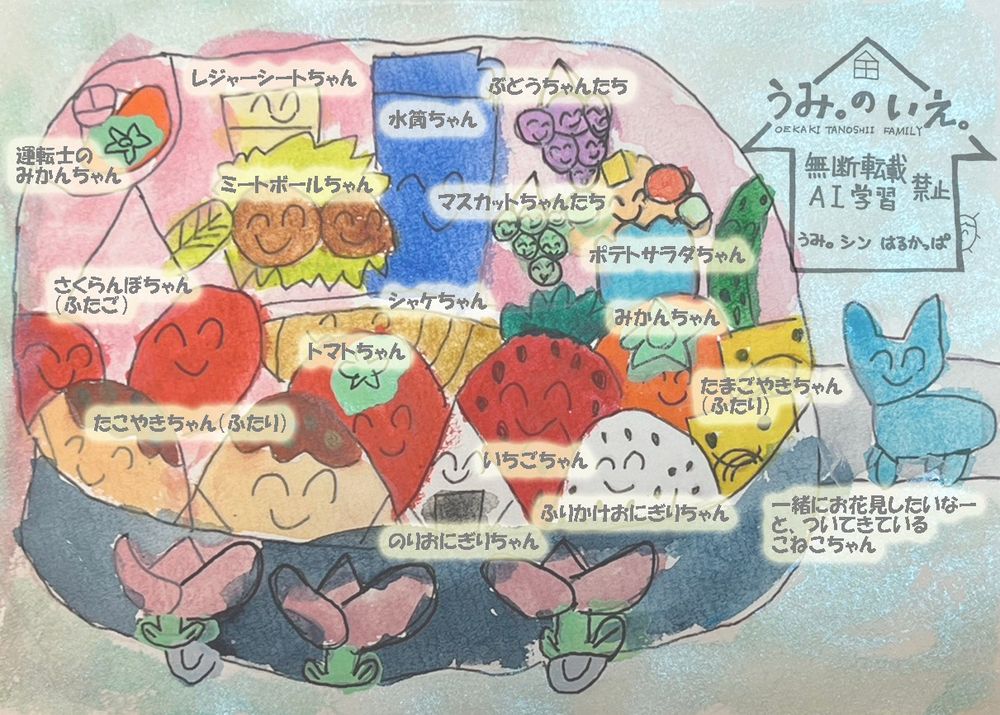 レジャーシートちゃん
ぶどうちゃんたち
水筒ちゃん
運転士の
みかんちゃん
ミートボールちゃん
マスカットちゃんたち
ポテトサラダちゃん
さくらんぼちゃん
(ふたご)
シャケちゃん
みかんちゃん
トマトちゃん
たまごやきちゃん
(ふたり)
たこやきちゃん(ふたり)
いちごちゃん
ふりかけおにぎりちゃん
のりおにぎりちゃん
一緒にお花見したいなー
と、ついてきている
こねこちゃん
うみ。のいえ。
OEKAKI TANOSHII FAMILY
無断転載
AI学習
禁止
うみ。シン はるかっぱ